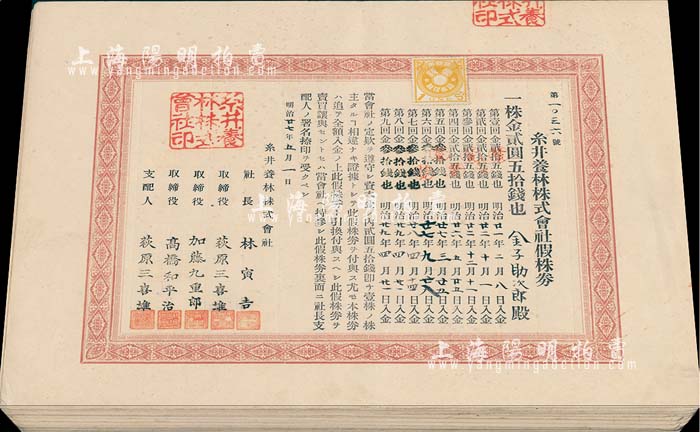 第一〇三六號
糸井養林株式會社假株券
一株金貳圓五拾錢也
金子助次郎殿
第壹回金貳拾五錢也 明治廿一年二月八日入金
第貳回金貳拾五錢也 明治廿二年十月一日入金
第參回金貳拾五錢也
第四回金貳拾五錢也
第五回金貳拾五錢也
第六回金貳拾五錢也 明治廿七年九月廿八日入金
第七回金參拾錢也 明治廿八年
第八回金參拾錢也 明治廿九年
第九回金參拾錢也 明治廿九年
當會社ノ定欵ヲ遵守シ壹株ノ內貳圓五拾錢卽チ壹株ノ株
主タルコ相違ナキ證據トシテ此假株券ヲ付與ス尤モ本株券
ハ追テ全額入金ノ上此假株券ト引換付與スヘシ此假株券ヲ
賣買讓與セントセハ當會社ヘ持參シ此假株券裏面ニ社長支
配人ノ署名捺印ヲ受クヘシ
明治廿七年五月一日
糸井養林株式會社
社長 林寅吉
取締役 荻原三喜雄
取締役 加藤九重郎
取締役 高橋和平治
支配人 荻原三喜雄
糸井養
林株式
會社印
上海陽明拍賣
www.yangmingauction.com
上海陽明拍賣
www.yangmingauction.com